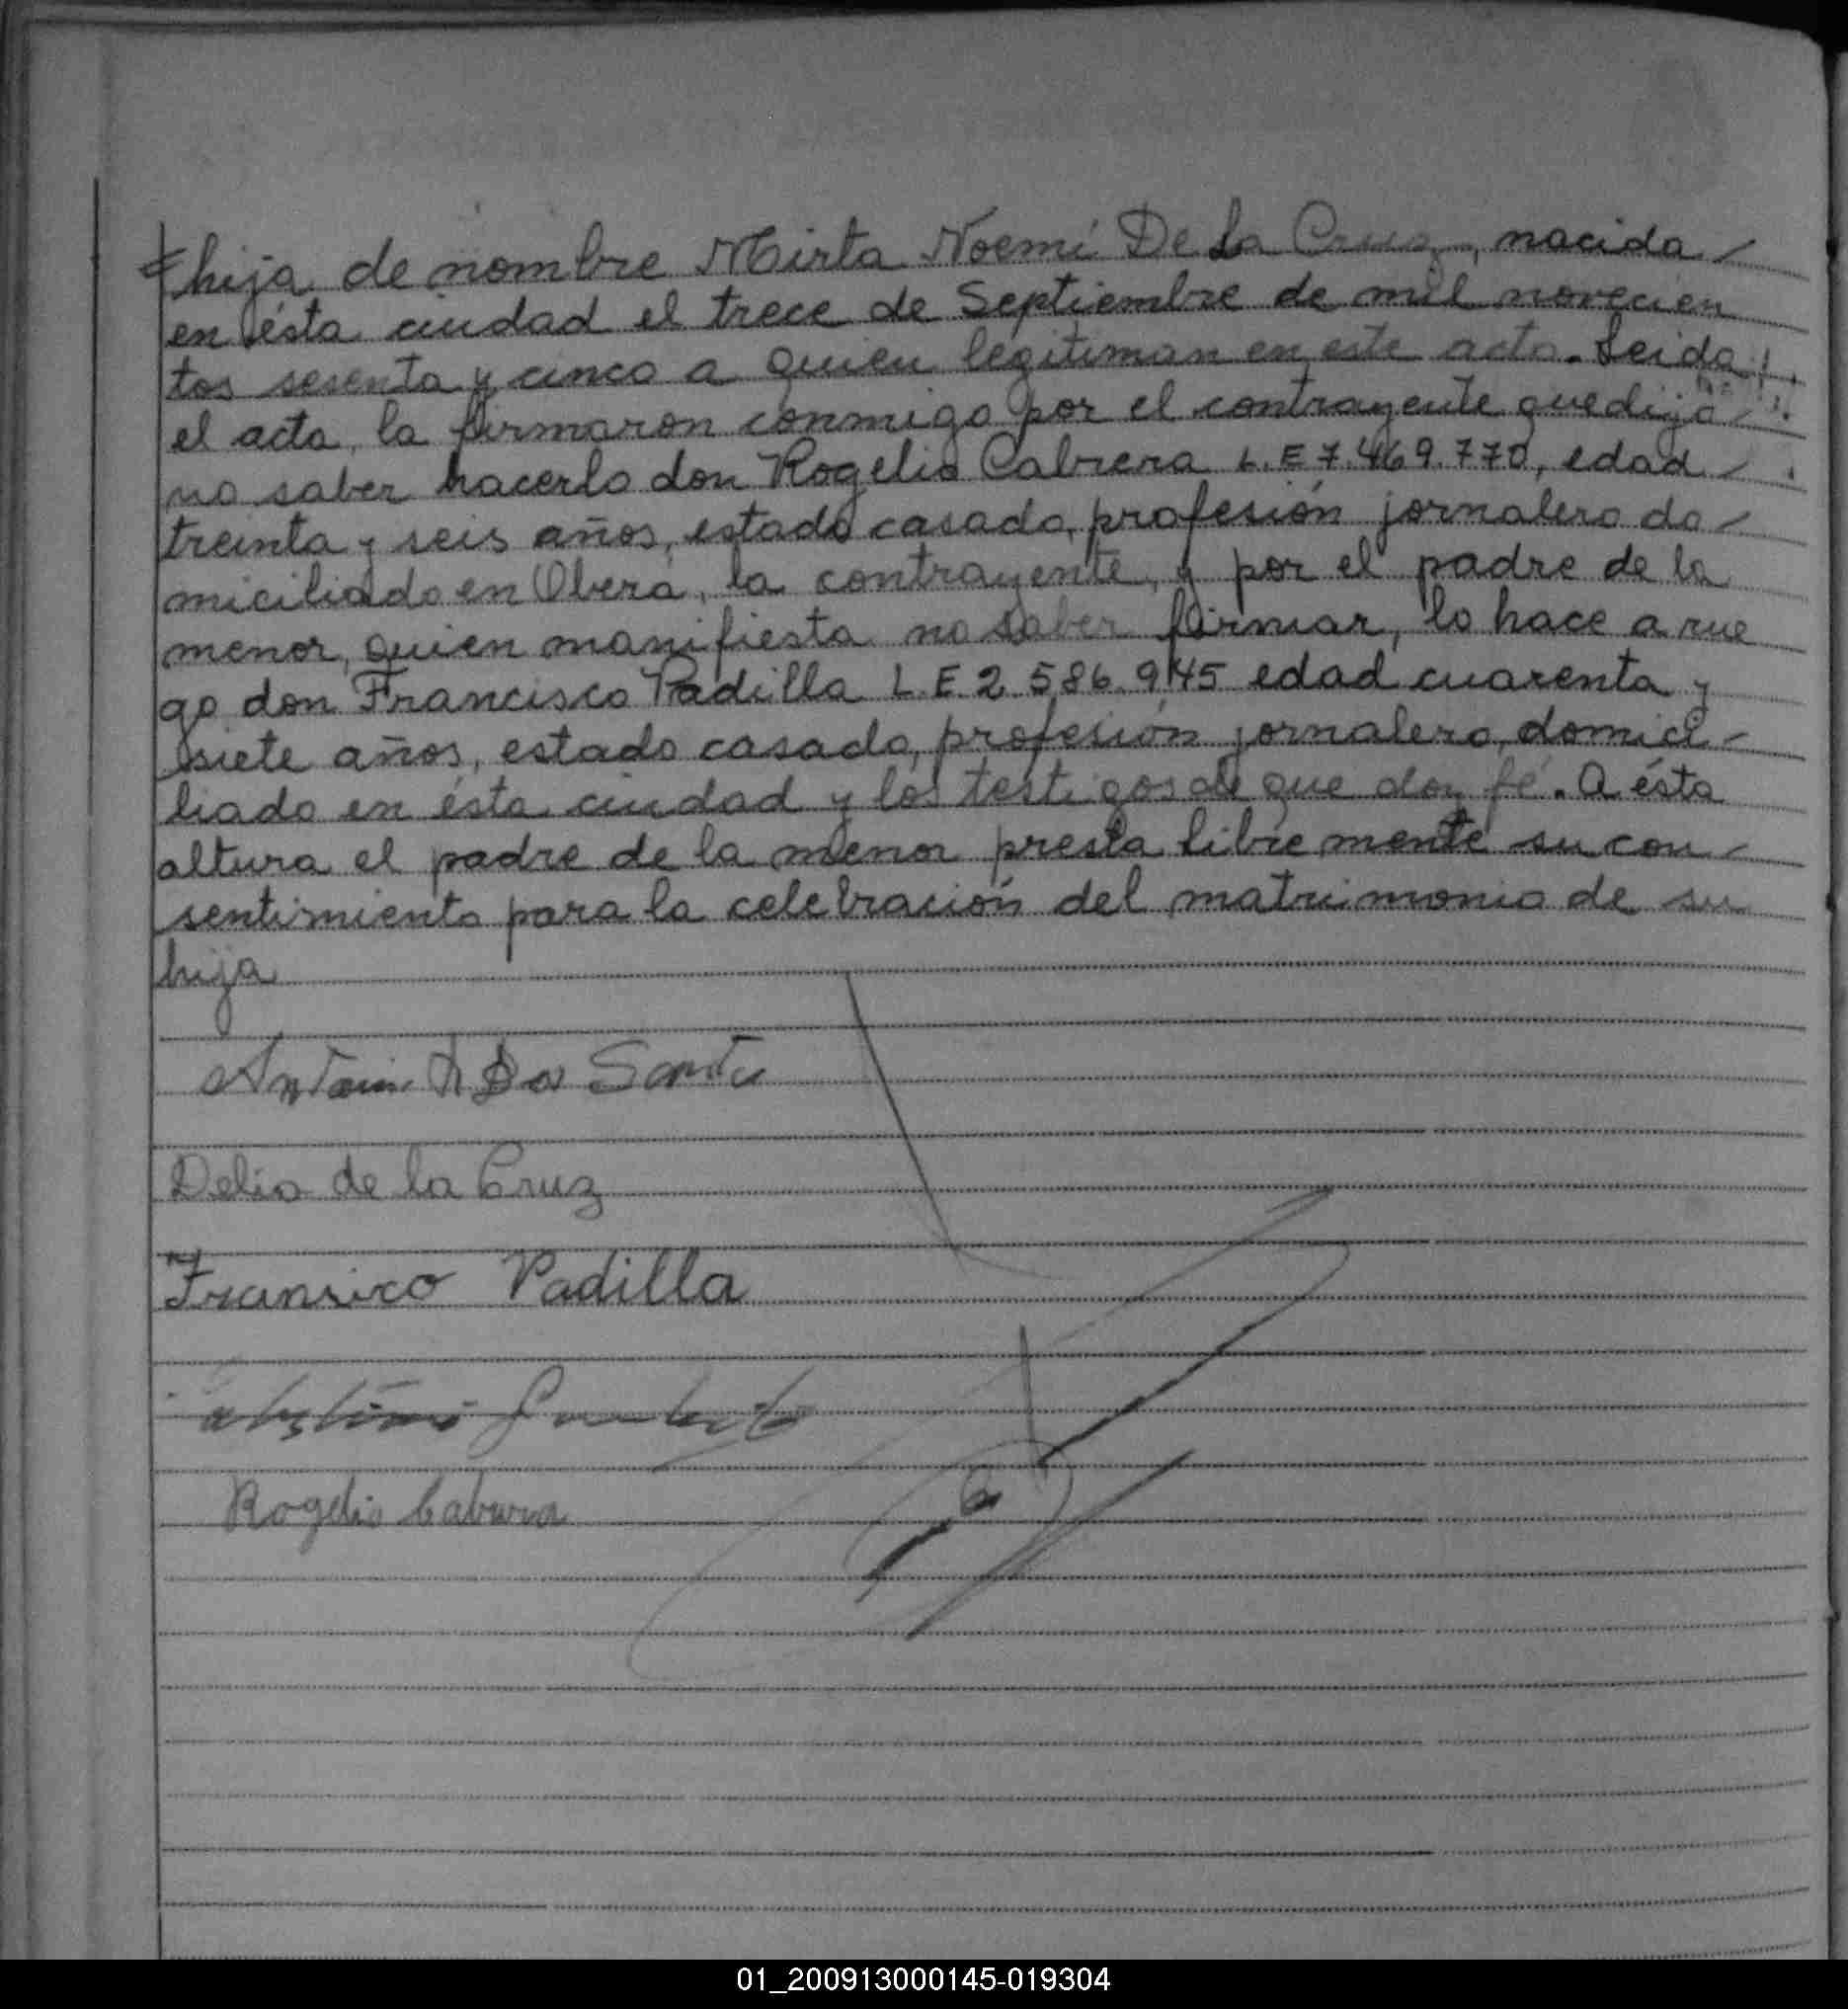 hija de nombre Mirta Noemí De La Cruz, nacida
en ésta ciudad el trece de Septiembre de mil novecien
tos sesenta y cinco a quien legitiman en este acto. Leida
el acta, la firmaron conmigo por el contrayente que dijo
no saber hacerlo don Rogelio Cabrera L.E 7.469.770, edad
treinta y seis años, estado casado, profesión jornalero do
miciliado en Oberá, la contrayente, y por el padre de la
menor, quien manifiesta no saber firmar, lo hace a rue
go don Francisco Padilla L.E 2.586.945 edad cuarenta y
siete años, estado casado, profesión jornalero, domici-
liado en ésta ciudad y los testigos de que doy fé. A ésta
altura el padre de la menor presta libremente su con
sentimiento para la celebración del matrimonio de su
hija
Delia de la Cruz
Padilla
Rogelio Cabrera
01_200913000145-019304